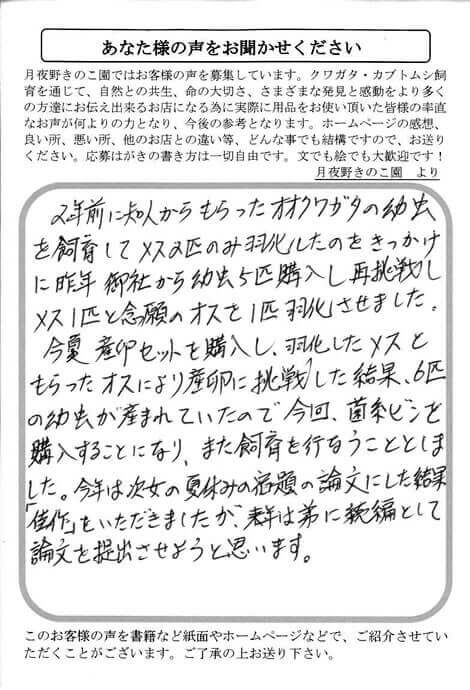 あなた様の声をお聞かせください
月夜野きのこ園ではお客様の声を募集しています。クワガタ・カブトムシ飼
育を通じて、自然との共生、命の大切さ、さまざまな発見と感動をより多く
の方達にお伝え出来るお店になる為に実際に用品をお使い頂いた皆様の率直
なお声が何よりの力となり、今後の参考となります。ホームページの感想、
良い所、悪い所、他のお店との違い等、どんな事でも結構ですので、お送り
ください。応募はがきの書き方は一切自由です。文でも絵でも大歓迎です！
月夜野きのこ園　より
2年前に知人からもらったオオクワガタの幼虫
を飼育してメス2匹のみ羽化したのをきっかけ
に昨年 御社から幼虫5匹購入し再挑戦し
メス1匹と念願のオスを1匹羽化させました。
今夏 産卵セットを購入し、羽化したメスと
もらったオスにより産卵に挑戦した結果、6匹
の幼虫が産まれていたので今回、菌糸ビンを
購入することになり、また飼育を行なうこととしま
した。今年は次女の夏休みの宿題の論文にした結果
「佳作」をいただきましたが、来年は弟に続編として
論文を提出させようと思います。
このお客様の声を書籍など紙面やホームページなどで、ご紹介させてい
ただくことがございます。ご了承の上お送り下さい。